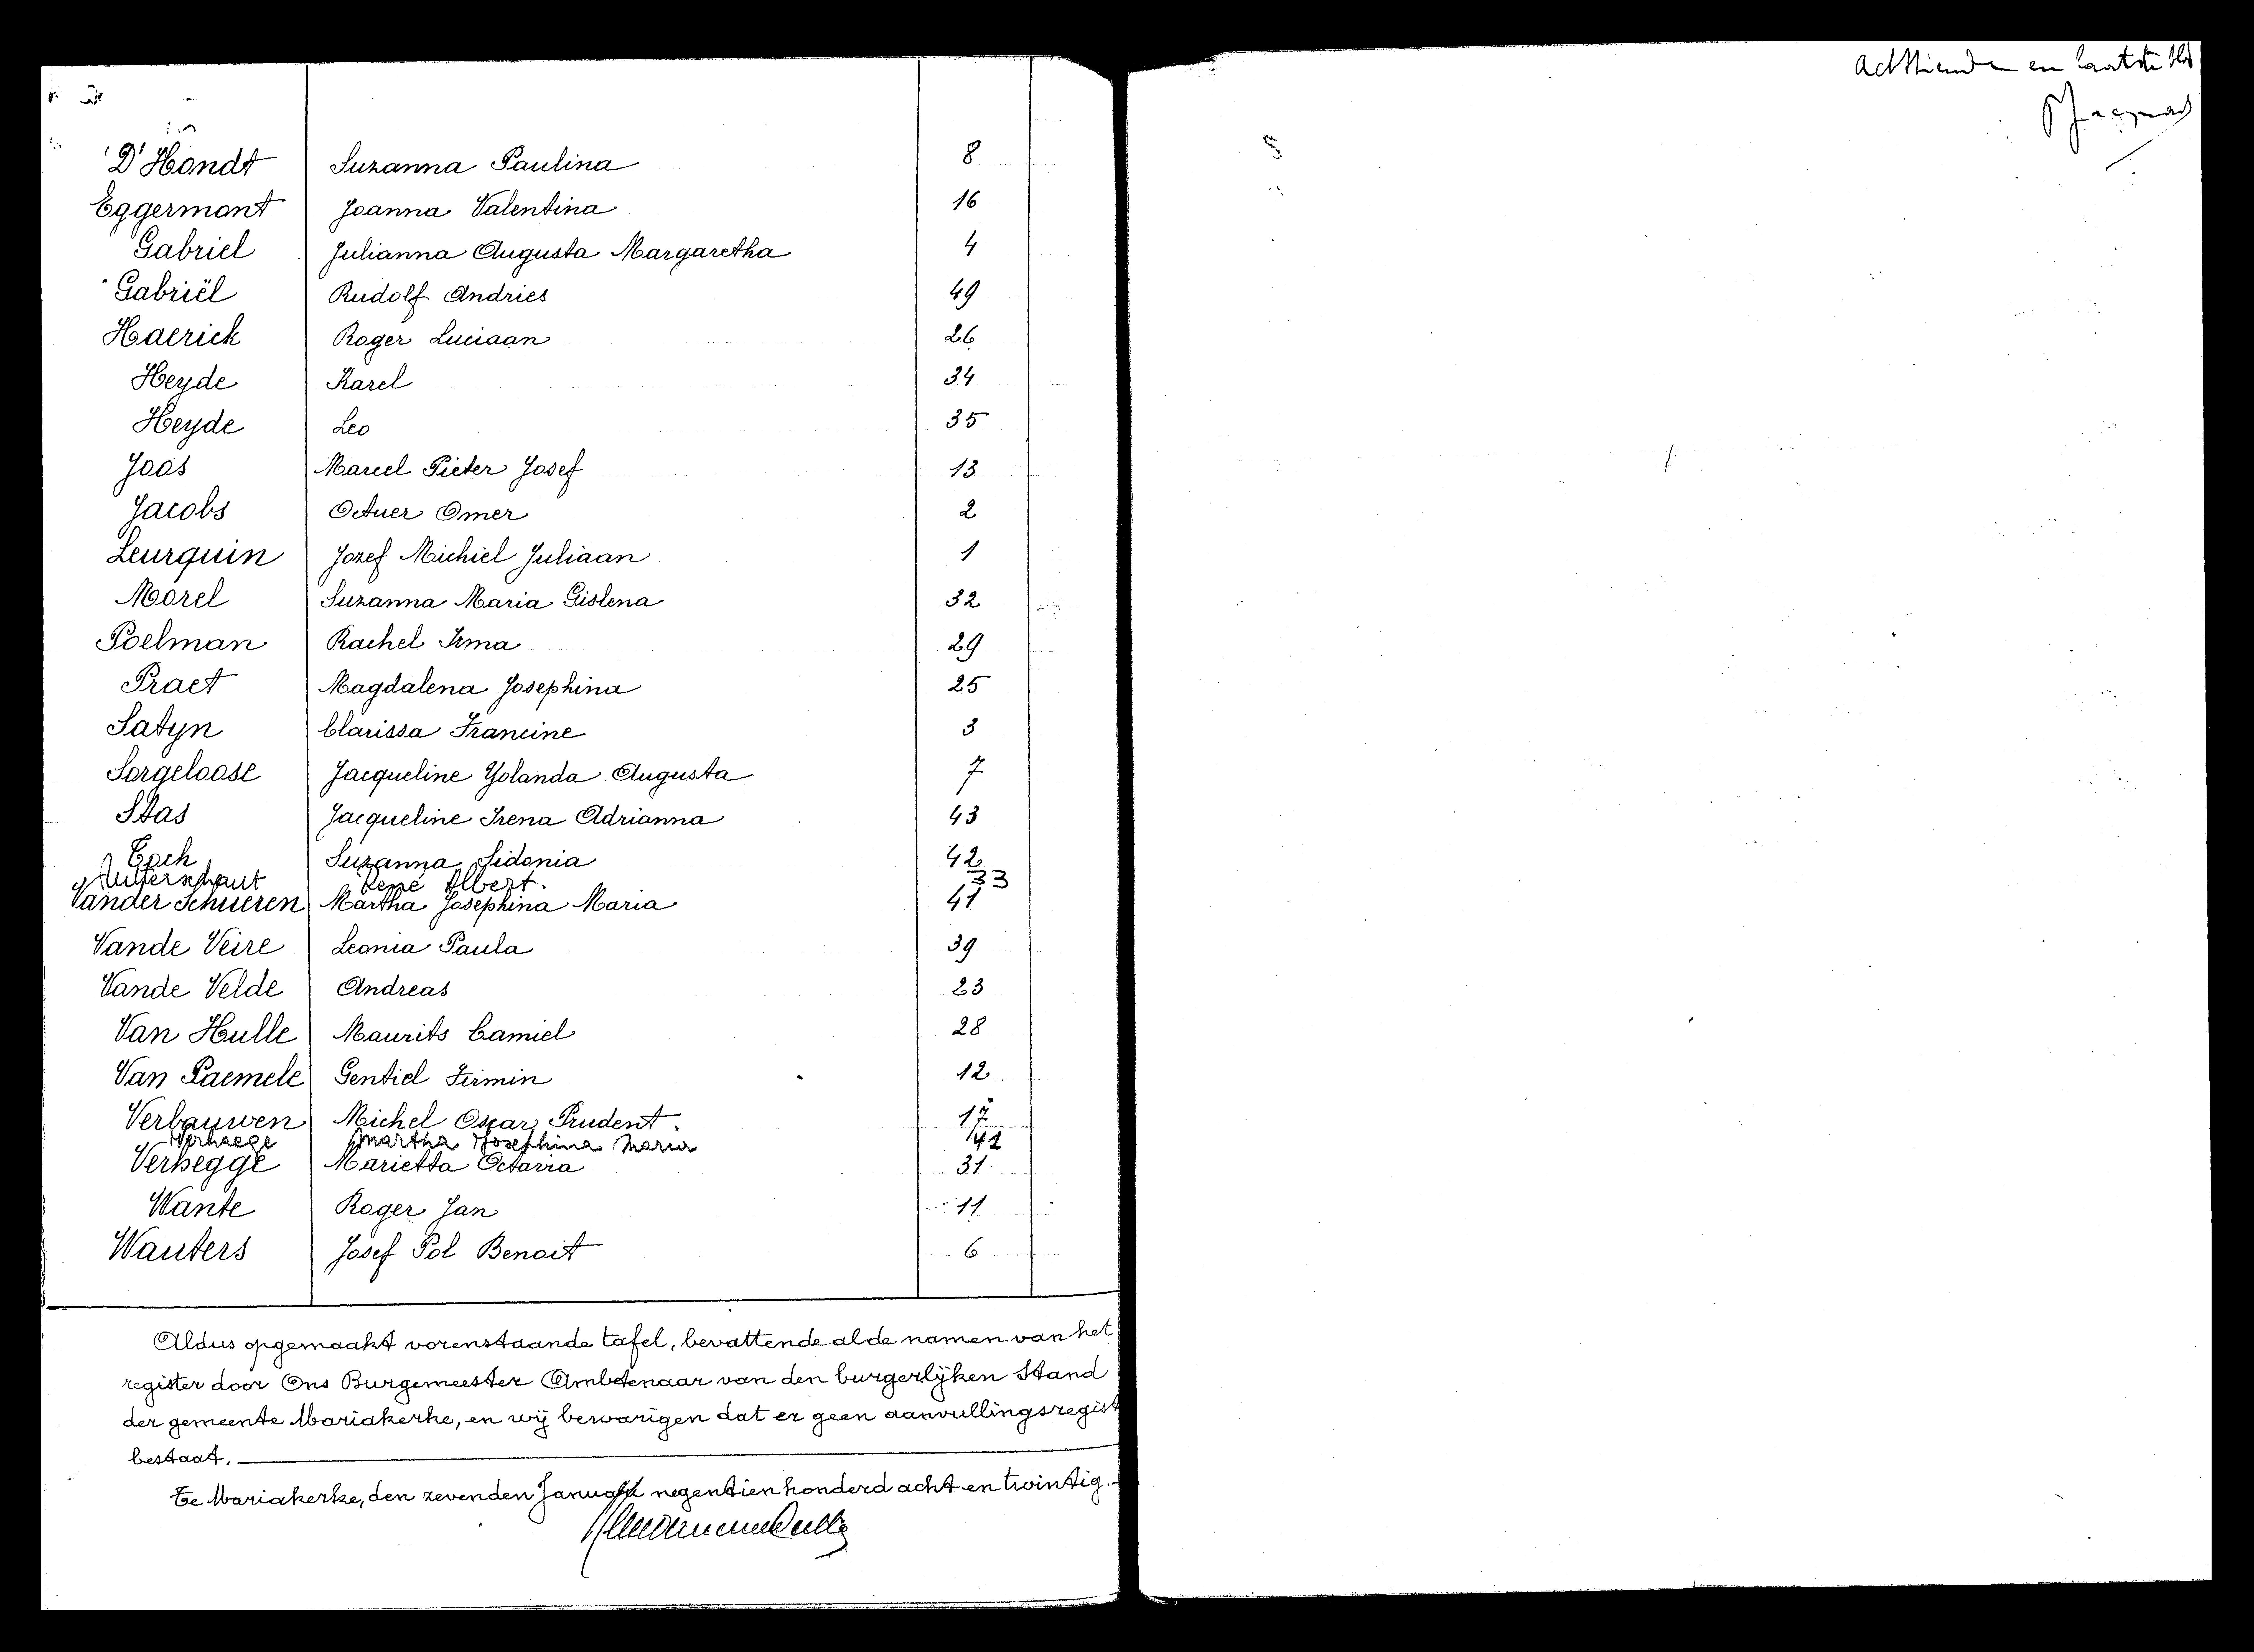 D'Hondt Suzanna Paulina 8
Eggermont Joanna Valentina 16
Gabriel Julianna Augusta Margaretha 4
Gabriël Rudolf Andries 49
Haerick Roger Luciaan 26
Heyde Karel 34
Heyde Leo 35
Joos Marcel Pieter Josef 13
Jacobs Omer 2
Leurquin Jozef Michiel Juliaan 1
Morel Suzanna Maria Gislena 32
Poelman Rachel Irma 29
Praet Magdalena Josephina 25
Satyn Clarissa Francine 3
Sorgeloose Jacqueline Yolanda Augusta 7
Stas Jacqueline Irena Adrianna 43
Toch Suzanna Sidonia 42
René Albert. 33
Vander Schueren Martha Josephina Maria 41
Vande Veire Leonia Paula 39
Vande Velde Andreas 23
Van Hulle Maurits Camiel 28
Van Paemele Gentiel Firmin 12
Verbauwen Michel Oscar Prudent. 17
Verhaege Martha Josephina Maria 41
Verhegge Marietta Octavia 31
Wante Roger Jan 11
Wauters Josef Pol Benoit 6
Aldus opgemaakt vorenstaande tafel, bevattende al de namen van het
register door Ons Burgemeester Ambtenaar van den burgerlijken Stand
der gemeente Mariakerke, en wij bevestigen dat er geen aanvullingsregist
bestaat.
Te Mariakerke, den zevenden Januari negentien honderd acht en twintig.
Achttiende en laatste blad